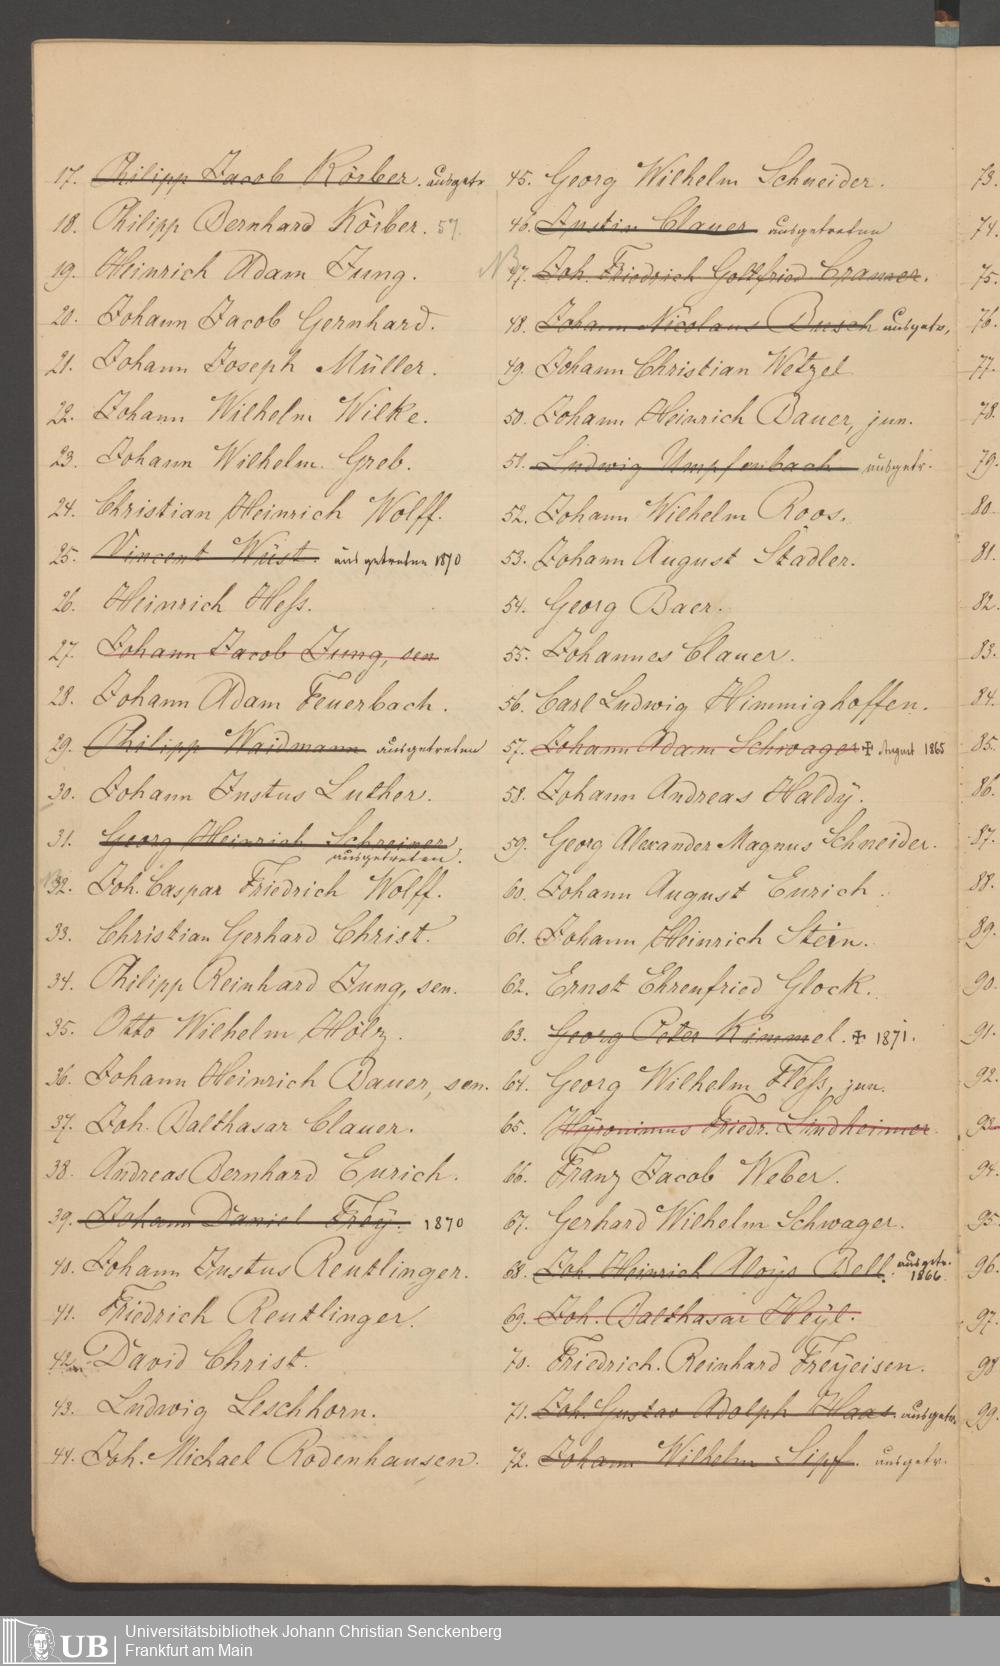 17. Philipp Jacob Körber. ausgetr.
18. Philipp Bernhard Körber. 57.
19. Heinrich Adam Jung.
20. Johann Jacob Gernhard.
21. Johann Joseph Müller.
22. Johann Wilhelm Wilke.
23. Johann Wilhelm Greb.
24. Christian Heinrich Wolff.
25. Vincent Wüst. ausgetreten 1870
26. Heinrich Heſs.
27. Johann Jacob Jung, sen.
28. Johann Adam Feuerbach.
29. Philipp Waidmann ausgetreten
30. Johann Justus Luther.
31. Georg Heinrich Schreiner,
ausgetreten.
32. Joh. Caspar Friedrich Wolff.
33. Christian Gerhard Christ.
34. Philipp Reinhard Jung, sen.
35. Otto Wilhelm Hölz.
36. Johann Heinrich Bauer, sen.
37. Joh. Balthasar Clauer.
38. Andreas Bernhard Eurich.
39. Johann Daniel Frey. 1870
40. Johann Justus Reutlinger.
41. Friedrich Reutlinger.
42. David Christ.
43. Ludwig Leschhorn.
44. Joh. Michael Rodenhausen.
45. Georg Wilhelm Schneider.
46. Justin Clauer ausgetreten
NB 47. Joh. Friedrich Gottfried Cramer.
48. Johann Nicolaus Busch ausgetr.
49. Johann Christian Wetzel
50. Johann Heinrich Bauer, jun.
51. Ludwig Umpfenbach ausgetr.
52. Johann Wilhelm Roos.
53. Johann August Städler.
54. Georg Baer.
55. Johannes Clauer.
56. Carl Ludwig Himmighoffen.
57. Johann Adam Schwager ✝ August 1865
58. Johann Andreas Haldÿ.
59. Georg Alexander Magnus Schneider.
60. Johann August Eurich.
61. Johann Heinrich Stern.
62. Ernst Ehrenfried Glock.
63. Georg Peter Kimmel. ✝ 1871.
64. Georg Wilhelm Fleſs, jun.
65. Hÿronimus Friedr. Lindheimer.
66. Franz Jacob Weber.
67. Gerhard Wilhelm Schwager.
68. Joh. Heinrich Aloÿs Bell. ausgetr.
1866
69. Joh. Balthasar Heÿl.
70. Friedrich Reinhard Freÿeisen.
71. Joh. Gustav Adolph Haas. ausgetr.
72. Johann Wilhelm Sipf. ausgetr.
73.
74.
75.
76.
77.
78.
79.
80
81.
82.
83.
84.
85.
86.
87.
88.
89.
90.
91.
92.
93
94.
95.
96.
97.
98
99.
UB
Universitätsbibliothek Johann Christian Senckenberg
Frankfurt am Main